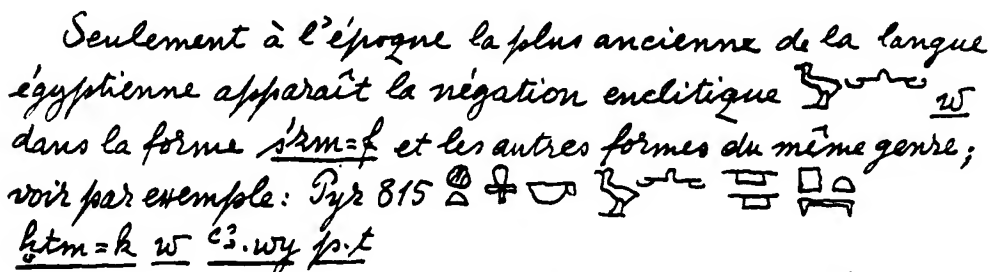 Seulement à l'époque la plus ancienne de la langue
égyptienne apparaît la négation enclitique 𓅱𓂜 w
dans la forme śḏm=f et les autres formes du même genre;
voir par exemple: Pyr 815 𓐍𓍘𓎡 𓅱𓂜 𓊪𓏏𓇯
ḫtm=k w ꜥꜣ.wy p.t